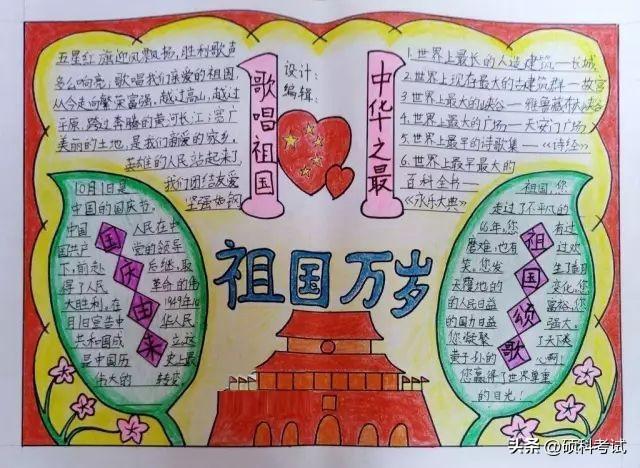 五星红旗迎风飘扬，胜利歌声
多么响亮；歌唱我们亲爱的祖国，
从今走向繁荣富强。越过高山，越过
平原，跨过奔腾的黄河长江；宽广
美丽的土地，是我们亲爱的家乡，
英雄的人民站起来了！
我们团结友爱
坚强如钢
歌唱祖国
设计：
编辑：
中华之最
1.世界上最长的人造建筑—长城
2.世界上现存最大的古建筑群—故宫
3.世界上最大的峡谷—雅鲁藏布大峡谷
4.世界上最大的广场—天安门广场
5.世界上最早的诗歌集—《诗经》
6.世界上最早最大的
百科全书—
《永乐大典》
祖国万岁
国庆由来
10月1日是
中国的国庆节。
中国 人民在中
国共产 党的领导
下，前赴 后继，取
得了人民 革命的伟
大胜利，在 1949年10
月1日宣告中 华人民
共和国成 立，这
是中国历 史上最
伟大的 转变
祖国颂歌
祖国，您
走过了不平凡的
64年，您 有过
磨难，也有 过欢
笑。您发 生了翻
天覆地的 变化，您
的人民日益 富裕，您
的国力日益 强大。
您凝聚 了天下
黄子孙的 心啊！
您赢得了世界尊重
的目光！
头条 @硕科考试